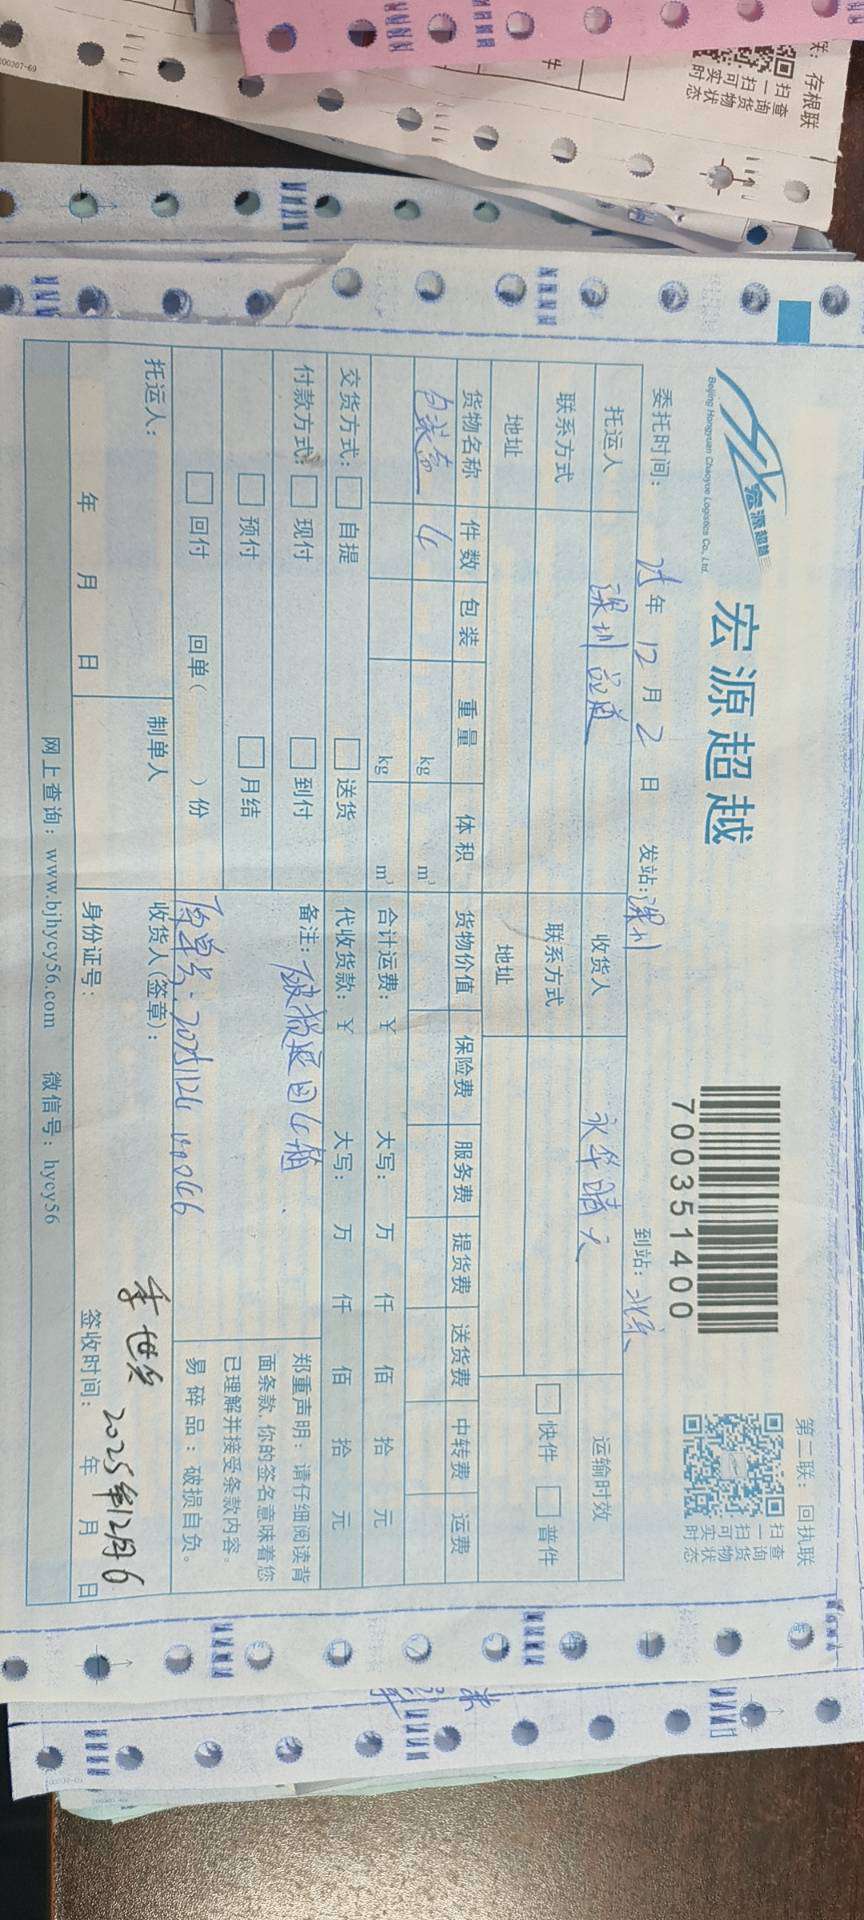 存根联
扫查
一询
扫货
可物
实状
时态
件
宏源超越
Beijing Hongyuan Chaoyue Logistics Co., Ltd.
宏源超越
700351400
第二联：回执联
扫查
一询
扫货
可物
实状
时态
委托时间： 25 年 12 月 2 日 发站：深圳 到站：北京
托运人 深圳 收货人 永华晴天 运输时效
联系方式 联系方式 快件 普件
地址 地址
货物名称 件数 包装 重量 体积 货物价值 保险费 服务费 提货费 送货费 中转费 运费
包装盒 4 kg m³
kg m³ 合计运费：￥ 大写： 万 仟 佰 拾 元
交货方式： 自提 送货 代收货款：￥ 大写： 万 仟 佰 拾 元
付款方式： 现付 到付 备注：破损返回4箱
预付 月结
回付 回单（ ）份 原单号：
郑重声明：请仔细阅读背
面条款，你的签名意味着您
已理解并接受条款内容。
易碎品：破损自负。
托运人： 制单人 收货人（签章）： 李世
年 月 日 身份证号： 签收时间： 2025年12月6 年 月 日
网上查询：www.bjhycy56.com 微信号：hycy56